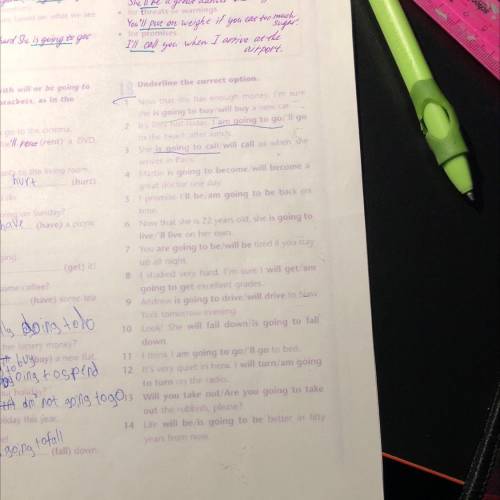 She'll be a great
for threats or warnings
You'll put on weight if you eat too much sugar.
for promises
I'll call you when I arrive at the airport.
is going to
with will or be going to
brackets, as in the
go to the cinema.
'll rent (rent) a DVD.
the living room.
hurt (hurt)
on Sunday?
have (have) a picnic
(get) it!
some coffee?
(have) some tea
going to do
the lottery money?
to buy (buy) a new flat.
going to spend
holiday?
'm not going to go
holiday this year.
going to fall
(fall) down.
18 Underline the correct option.
1 Now that she has enough money, I'm sure
she is going to buy/will buy a new car.
2 It's very hot today. I am going to go/'ll go
to the beach after work.
3 She is going to call/will call us when she
arrives in Paris.
4 Martin is going to become/will become a
great doctor one day.
5 I promise I'll be/am going to be back on
time.
6 Now that she is 22 years old, she is going to
live/'ll live on her own.
7 You are going to be/will be tired if you stay
up all night.
8 I studied very hard. I'm sure I will get/am
going to get excellent grades.
9 Andrew is going to drive/will drive to New
York tomorrow evening.
10 Look! She will fall down/is going to fall
down.
11 I think I am going to go/'ll go to bed.
12 It's very quiet in here. I will turn/am going
to turn on the radio.
13 Will you take out/Are you going to take
out the rubbish, please?
14 Life will be/is going to be better in fifty
years from now.